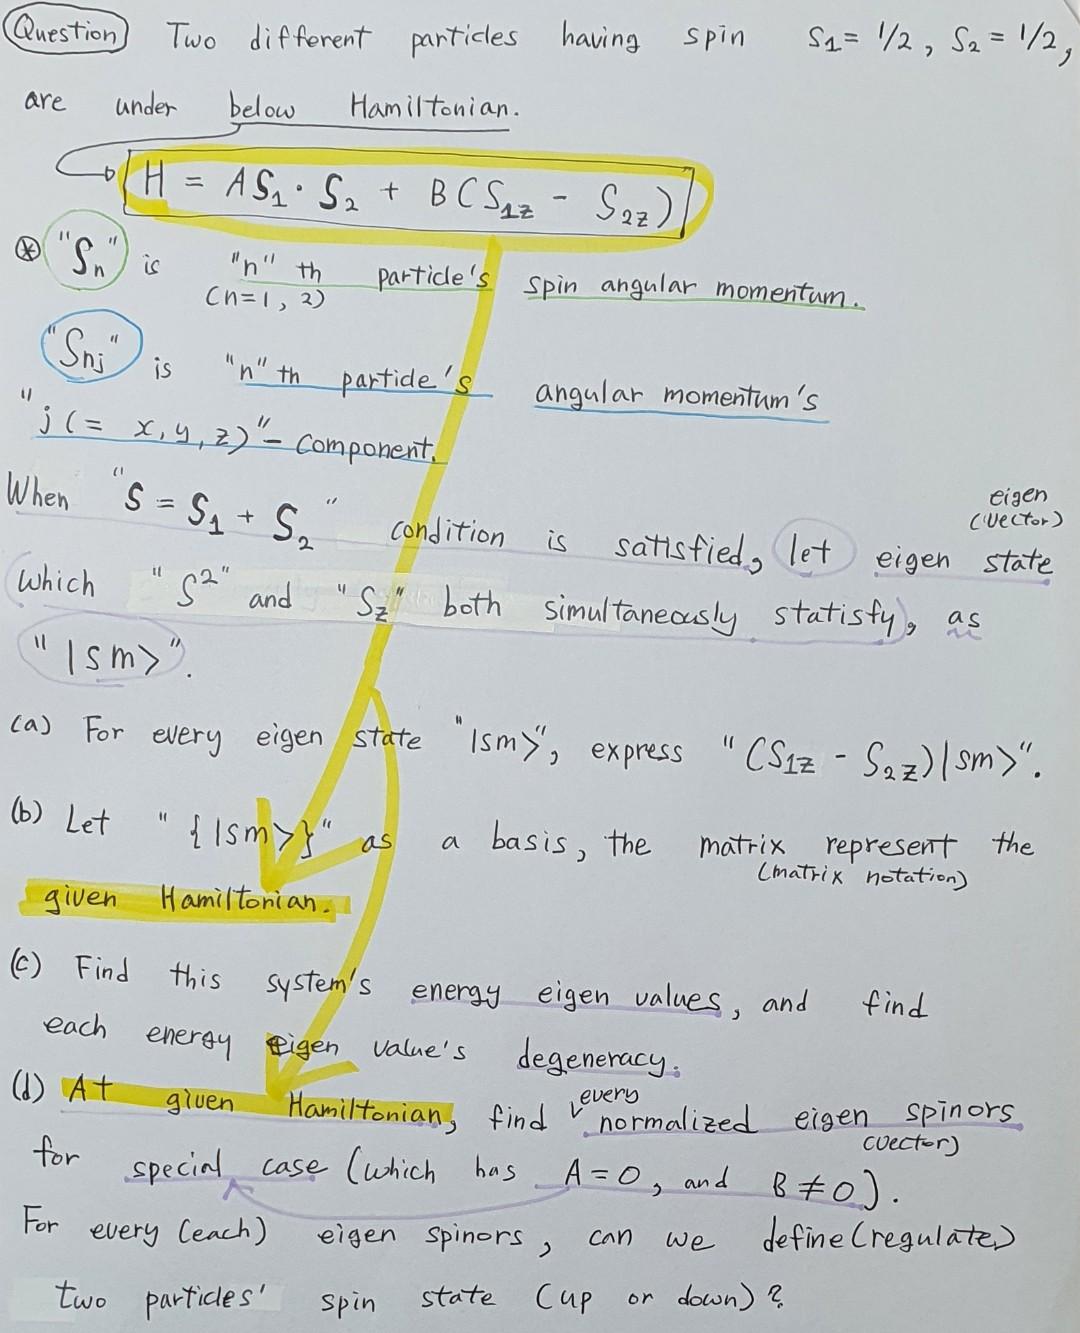 Question Two different particles having spin S1 = 1/2, S2 = 1/2,
are under below Hamiltonian.
H = AS1·S2 + B(S1z - S2z)
⊛ "Sn" is "n" th particle's spin angular momentum.
(n=1, 2)
"Snj" is "n" th particle's angular momentum's
"j (= x, y, z)" - component.
When "S = S1 + S2" condition is satisfied, let eigen state
eigen (vector)
which "S²" and "Sz" both simultaneously statisfy, as
"|sm>".
(a) For every eigen state "|sm>", express "(S1z - S2z)|sm>".
(b) Let "{|sm>}" as a basis, the matrix represent the
(matrix notation)
given Hamiltonian.
(c) Find this system's energy eigen values, and find
each energy eigen value's degeneracy.
(d) At given Hamiltonian, find every normalized eigen spinors
(vector)
for special case (which has A=0, and B≠0).
For every (each) eigen spinors, can we define (regulate)
two particles' spin state (up or down)?